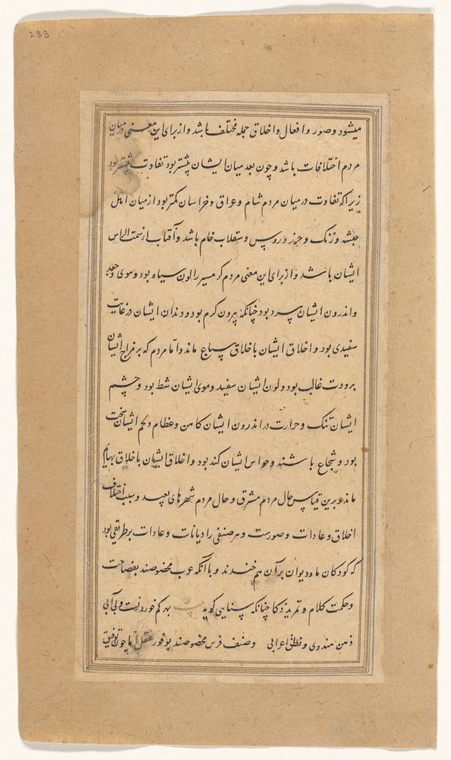 233
میشود و صور و افعال و اخلاق جمله مختلف باشد و از برای این معنی در میان
مردم اختلافات باشد و چون بعد میان ایشان بیشتر بود تفاوت بیشتر بود
زیرا که تفاوت در میان مردم شام و عراق و خراسان کمتر بود از میان اهل
حبشه و زنک و روس و سقلاب خام باشد و آفتاب از سمت الراس
ایشان باشد و از برای این معنی مردم کرمسیر را لون سیاه بود و موی جعد
و اندرون ایشان سرد بود چنانکه بیرون کرم بود و دندان ایشان در غایت
سفیدی بود و اخلاق ایشان باخلاق سباع ماند و اما مردم که بر مزاج ایشان
برودت غالب بود و لون ایشان سفید و موی ایشان شط بود و چشم
ایشان تنک و حرارت در اندرون ایشان کامن و عظام و لحم ایشان سخت
بود و شجاع باشند و حواس ایشان کند بود و اخلاق ایشان باخلاق بهایم
ماند و برین قیاس حال مردم مشرق و حال مردم شهرهای بعید و سبب اختلاف
اخلاق و عادات و صورت و هر صنفی را دیانات و عادات بر طریقی بود
که کودکان ما و دیوان بر آن هم خندند و با آنکه عرب مخصوصند بفصاحت
و حکمت کلام و ذکا چنانکه سنایی کوید
ذهن هندی و نطق اعرابی و صنف فرس مخصوصند بوفور عقل